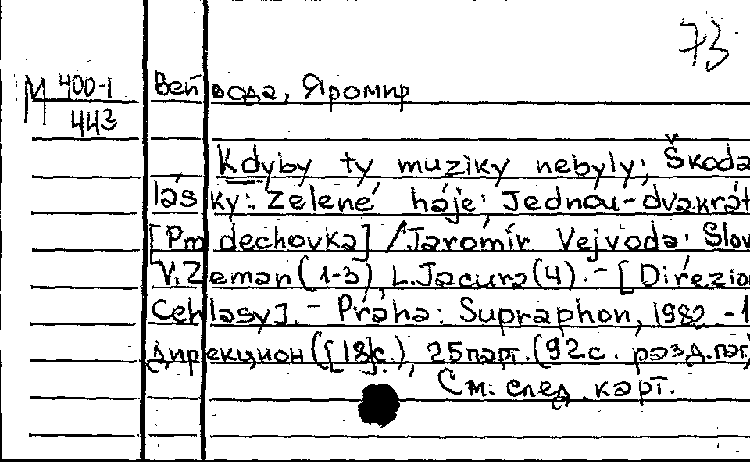 73
М 400-1
443
Вейвода, Яромир
Kdyby ty muziky nebyly; Škoda
lásky: Zelené háje; Jednou-dvakrát
[Pro dechovka] / Jaromír Vejvoda. Slov
V. Zeman (1-3), L. Jacura (4). - [Direzio
Ceh lasy]. - Praha: Supraphon, 1982. - 1
дирекцион ([18]с.), 25 парт. (92с. разд. паг
См. след. карт.